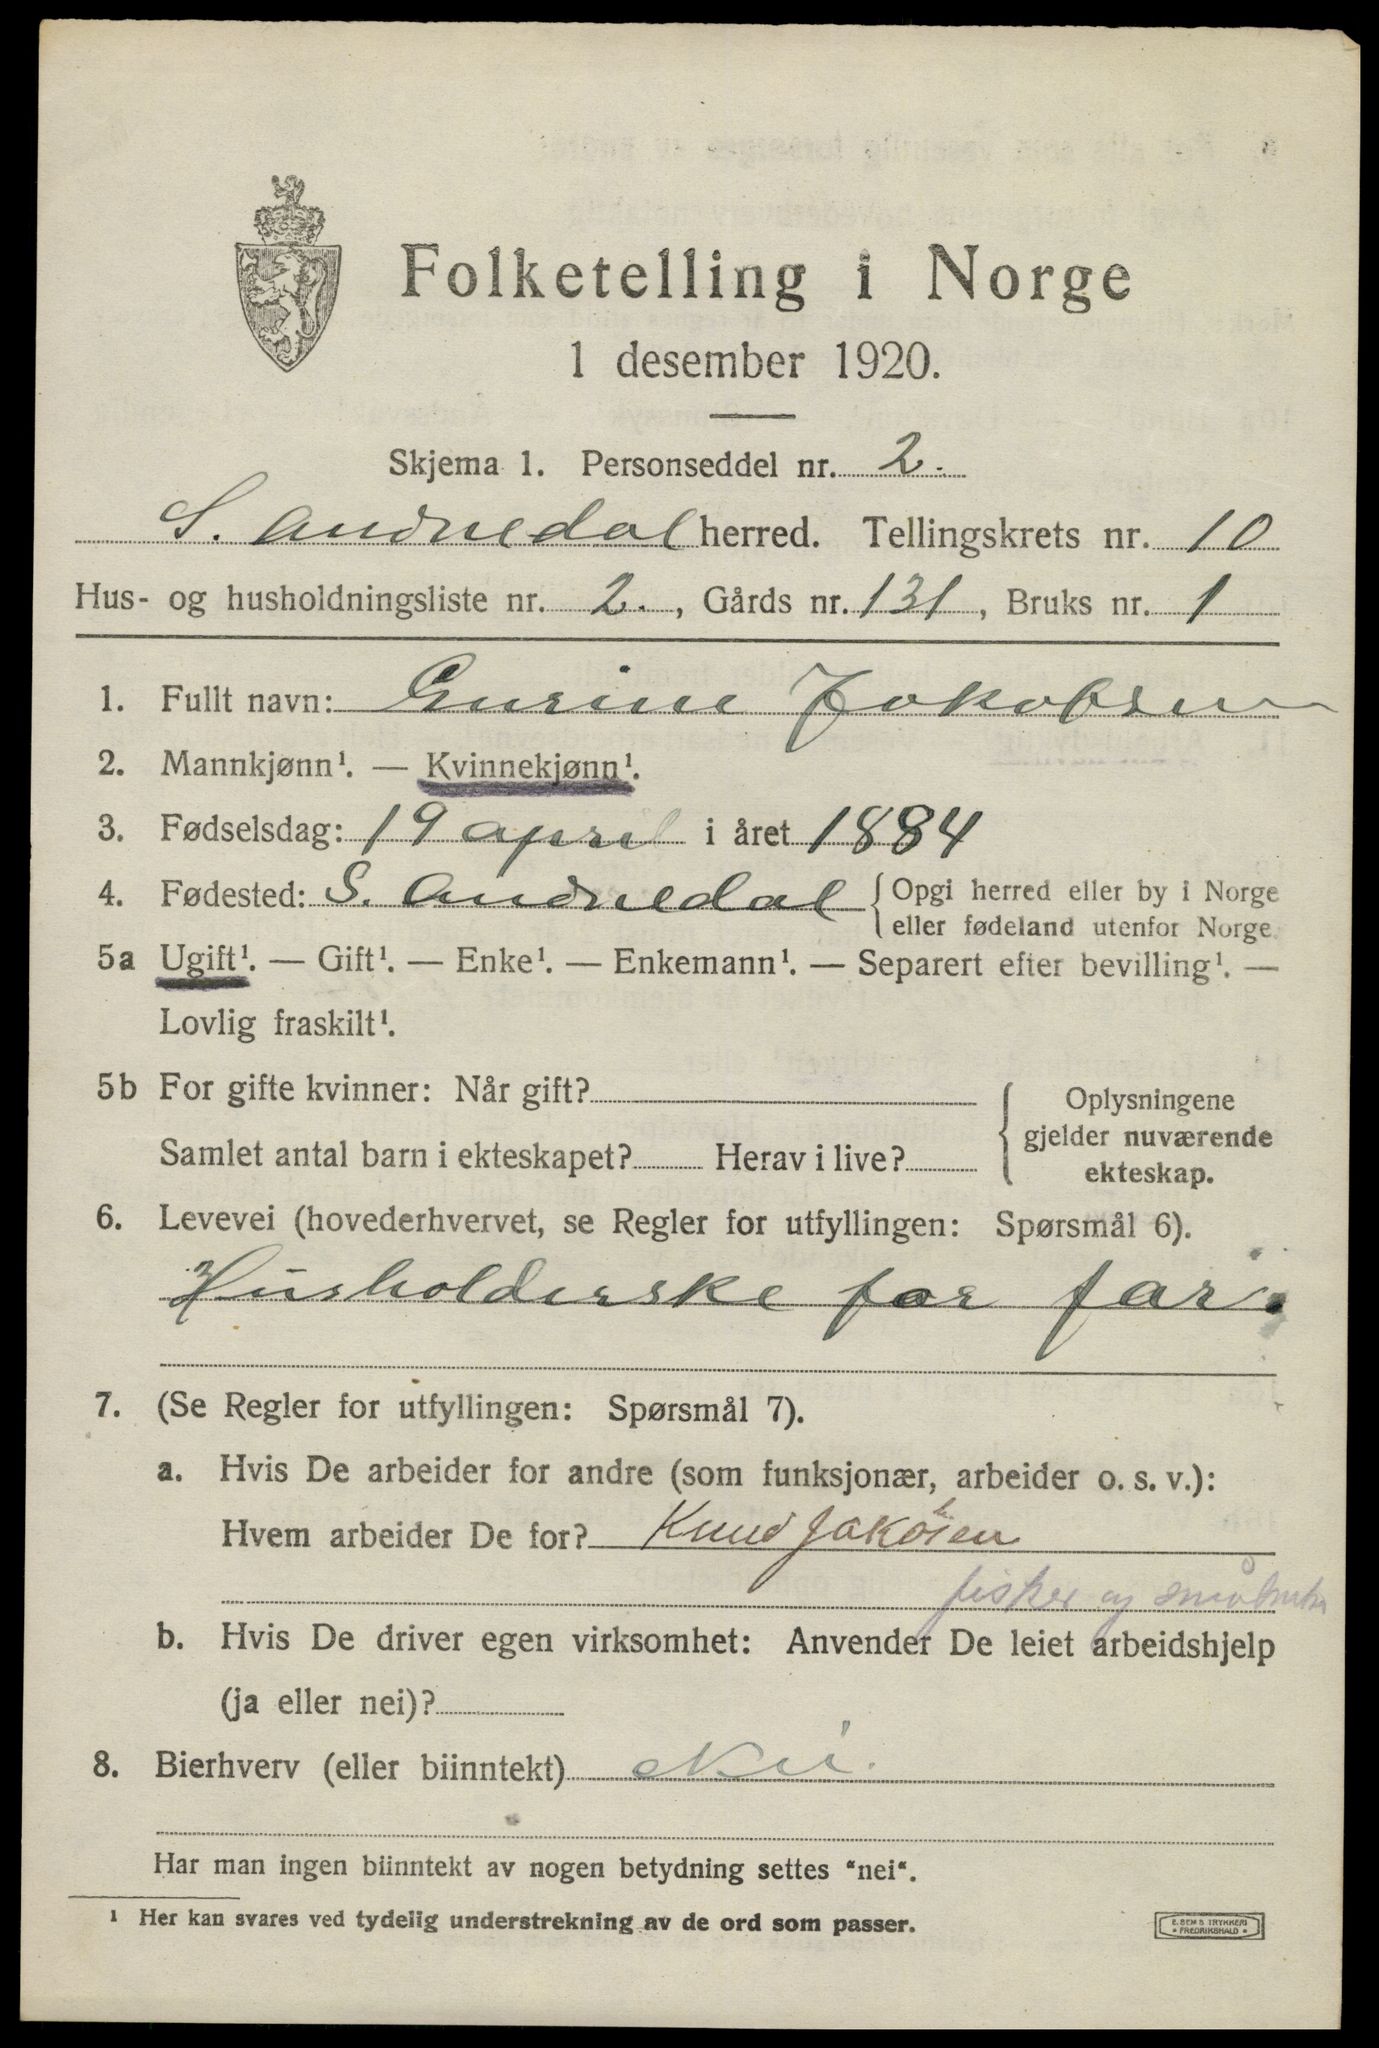 Folketelling i Norge
1 desember 1920.
Skjema 1. Personseddel nr. 2.
S. Audnedal herred. Tellingskrets nr. 10
Hus- og husholdningsliste nr. 2., Gårds nr. 131, Bruks nr. 1
1. Fullt navn: Gurine Jakobsen
2. Mannkjønn¹. — Kvinnekjønn¹.
3. Fødselsdag: 19 april i året 1884
4. Fødested: S. Audnedal { Opgi herred eller by i Norge
eller fødeland utenfor Norge.
5a Ugift¹. — Gift¹. — Enke¹. — Enkemann¹. — Separert efter bevilling¹. —
Lovlig fraskilt¹.
5b For gifte kvinner: Når gift?
Samlet antal barn i ekteskapet? Herav i live?
{ Oplysningene
gjelder nuværende
ekteskap.
6. Levevei (hovederhvervet, se Regler for utfyllingen: Spørsmål 6).
Husholderske for far.
7. (Se Regler for utfyllingen: Spørsmål 7).
a. Hvis De arbeider for andre (som funksjonær, arbeider o. s. v.):
Hvem arbeider De for? Knud Jakobsen
fisker og småbruker
b. Hvis De driver egen virksomhet: Anvender De leiet arbeidshjelp
(ja eller nei)?
8. Bierhverv (eller biinntekt) Nei.
Har man ingen biinntekt av nogen betydning settes "nei".
¹ Her kan svares ved tydelig understrekning av de ord som passer.
E. SEM'S TRYKKERI
• FREDRIKSHALD •